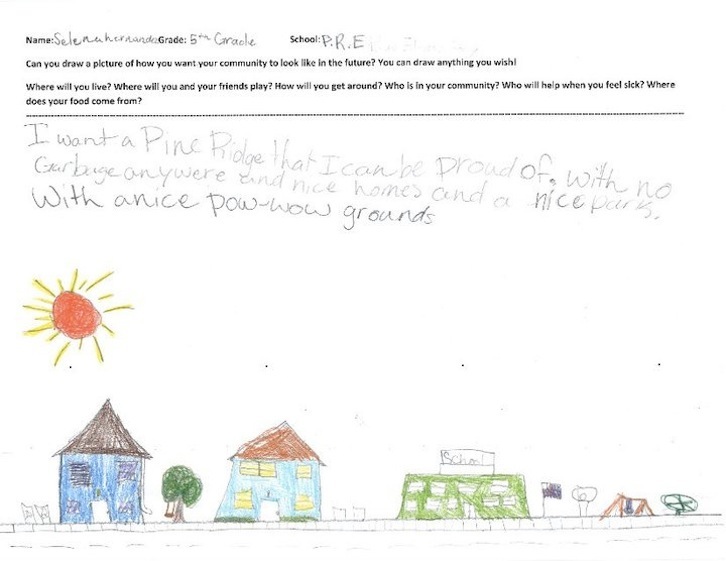 Name: Selena hernandez Grade: 5th Grade School: P.R.E
Can you draw a picture of how you want your community to look like in the future? You can draw anything you wish!
Where will you live? Where will you and your friends play? How will you get around? Who is in your community? Who will help when you feel sick? Where
does your food come from?
I want a Pine Ridge that I can be proud of. with no
Garbage anywere and nice homes and a nice park.
With a nice pow-wow grounds
School